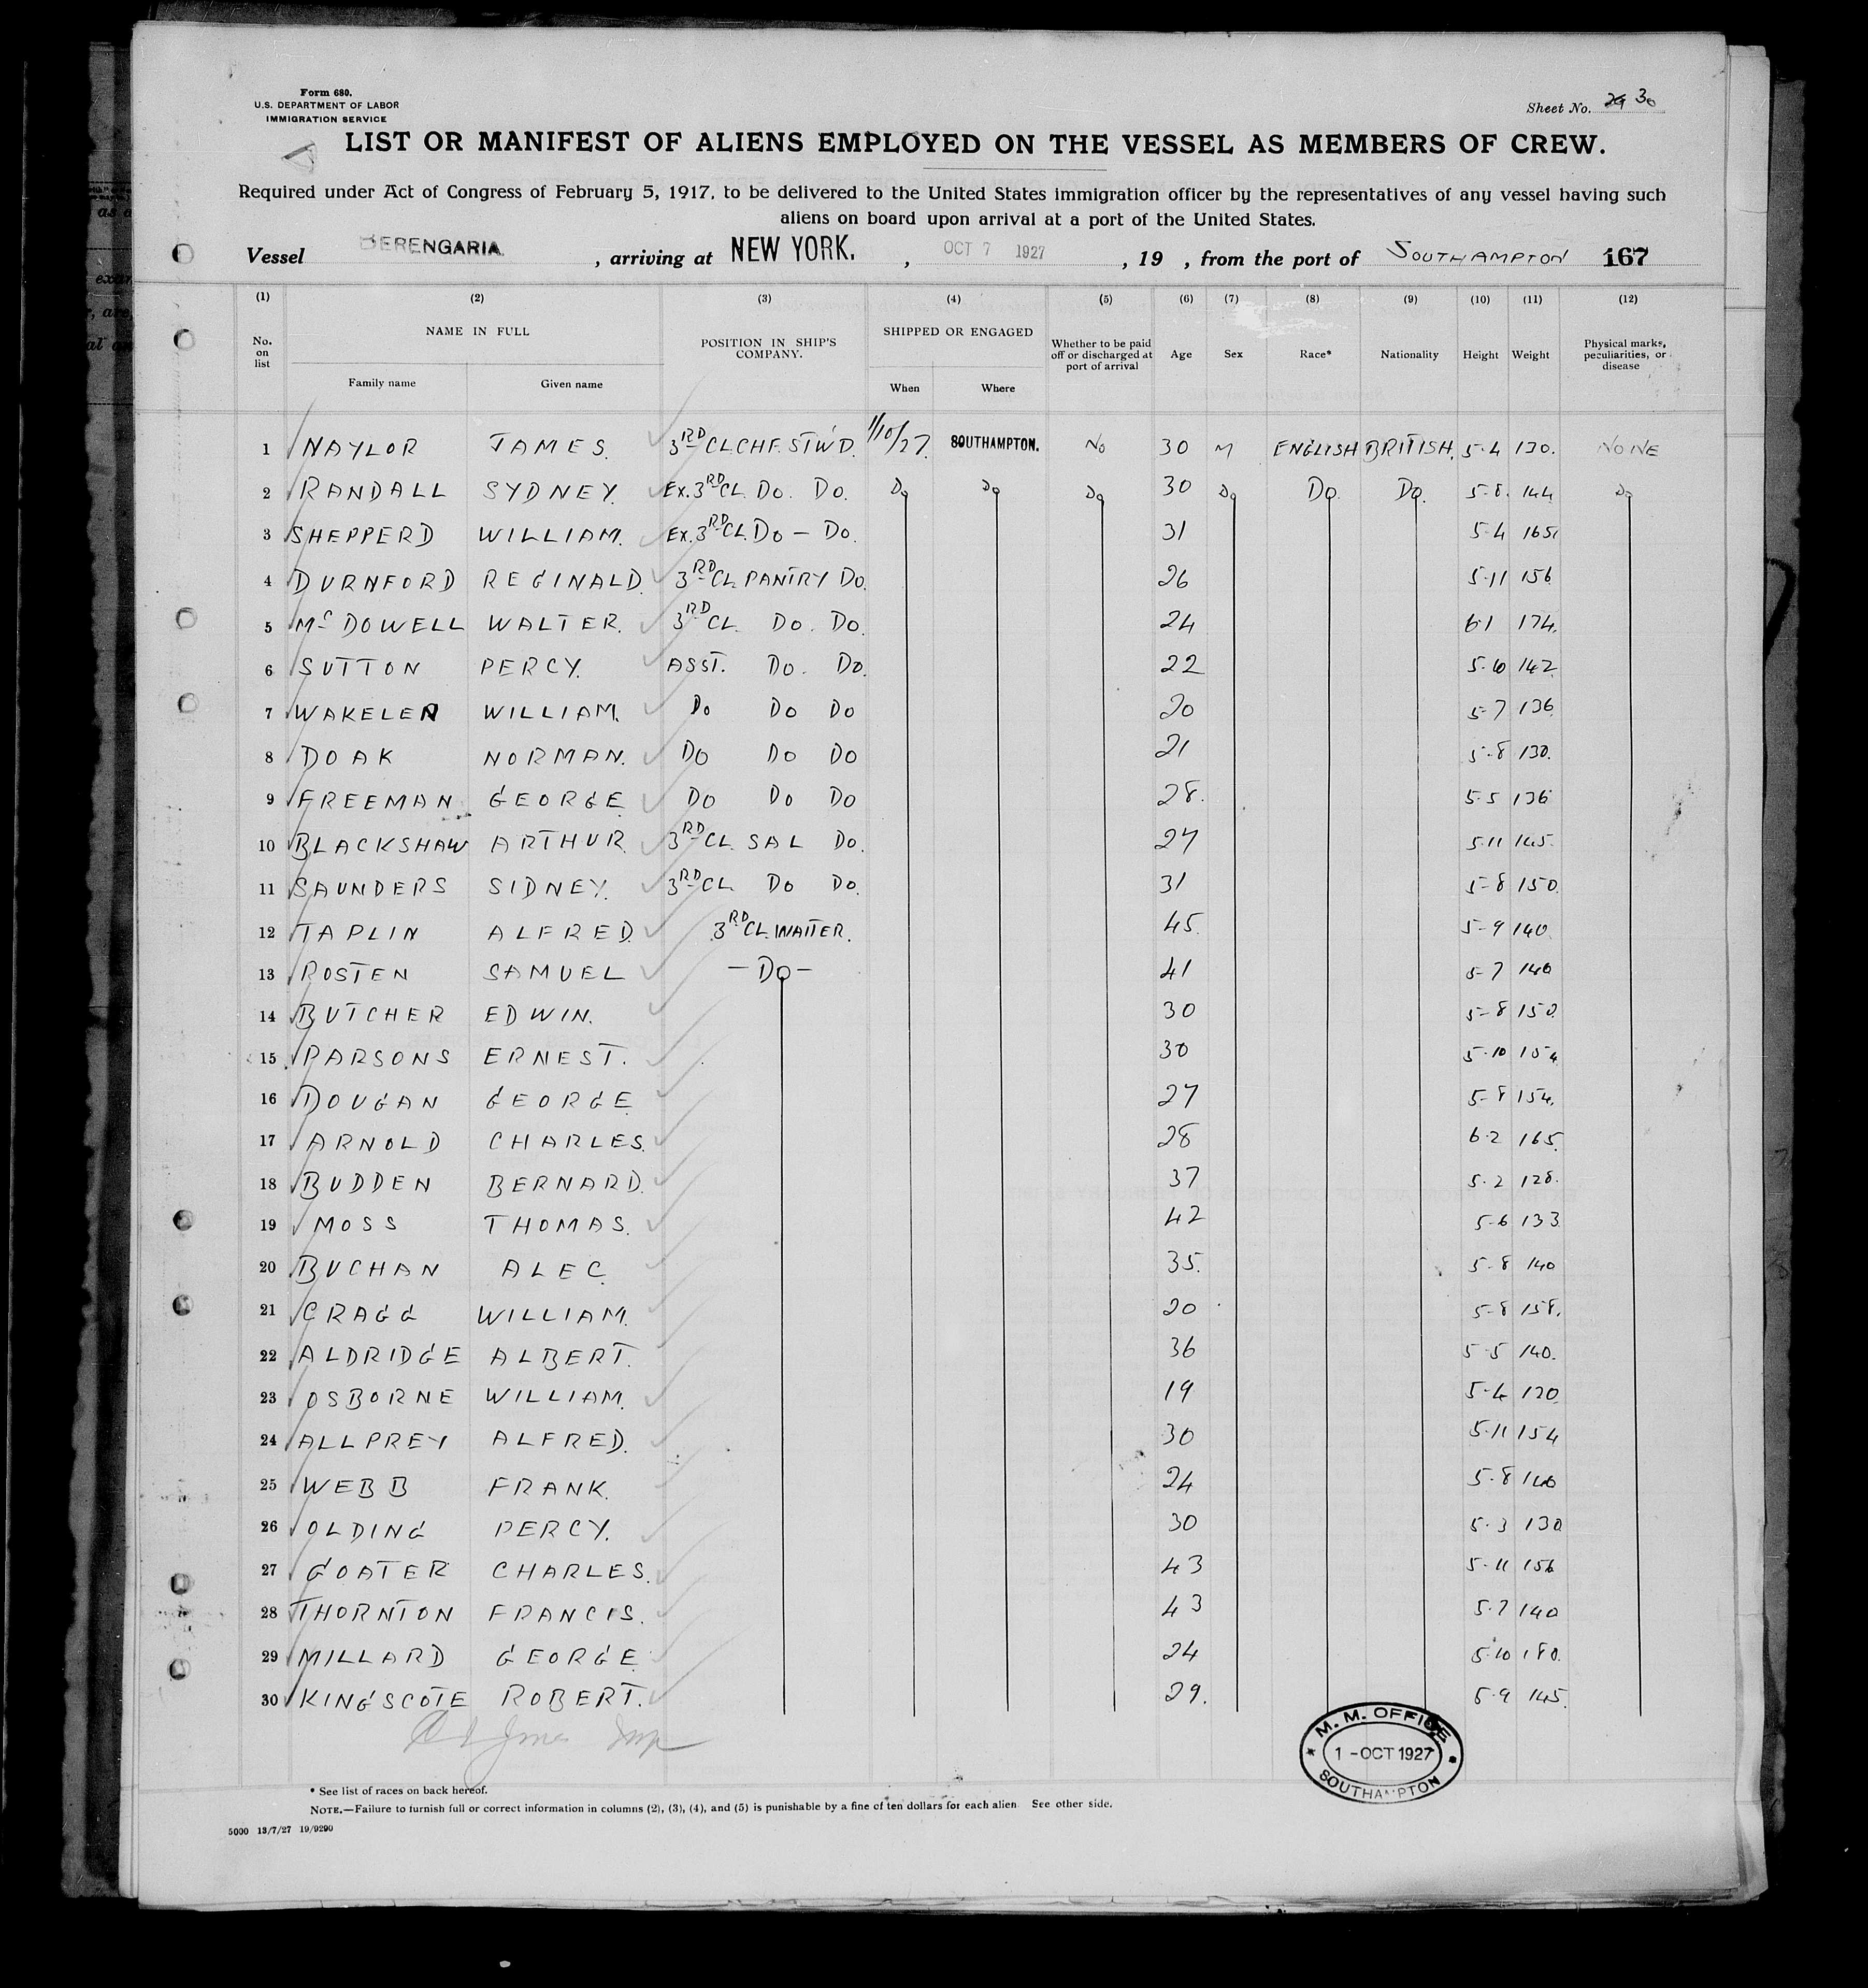 Form 680.
U.S. DEPARTMENT OF LABOR
IMMIGRATION SERVICE
Sheet No. 29 30
LIST OR MANIFEST OF ALIENS EMPLOYED ON THE VESSEL AS MEMBERS OF CREW.
Required under Act of Congress of February 5, 1917, to be delivered to the United States immigration officer by the representatives of any vessel having such
aliens on board upon arrival at a port of the United States.
Vessel BERENGARIA , arriving at NEW YORK. , OCT 7 1927 , 19 , from the port of SOUTHAMPTON 167
(1) (2) (3) (4) (5) (6) (7) (8) (9) (10) (11) (12)
No. on list NAME IN FULL POSITION IN SHIP'S COMPANY. SHIPPED OR ENGAGED Whether to be paid off or discharged at port of arrival Age Sex Race* Nationality Height Weight Physical marks, peculiarities, or disease
Family name Given name When Where
1 NAYLOR JAMES. 3RD CL.CHF.STW'D. 1/10/27. SOUTHAMPTON. No 30 M ENGLISH BRITISH. 5-4 130. NONE
2 RANDALL SYDNEY. Ex.3RD CL. Do. Do. Do Do Do 30 Do Do. Do. 5-8. 144 Do
3 SHEPPERD WILLIAM. Ex.3RD CL. Do - Do. 31 5-4 165
4 DURNFORD REGINALD. 3RD CL PANTRY Do. 26 5-11 156
5 McDOWELL WALTER. 3RD CL. Do. Do. 24 6-1 174.
6 SUTTON PERCY. ASST. Do. Do. 22 5-6 142
7 WAKELEN WILLIAM. Do Do Do 20 5-7 136
8 DOAK NORMAN. Do Do Do 21 5-8 130.
9 FREEMAN GEORGE Do Do Do 28. 5-5 136
10 BLACKSHAW ARTHUR. 3RD CL. SAL Do. 27 5-11 145.
11 SAUNDERS SIDNEY. 3RD CL. Do Do. 31 5-8 150.
12 TAPLIN ALFRED. 3RD CL.WAITER. 45. 5-9 140.
13 ROSTEN SAMUEL - Do - 41 5-7 140
14 BUTCHER EDWIN. 30 5-8 150.
15 PARSONS ERNEST. 30 5-10 154
16 DOUGAN GEORGE 27 5-8 154.
17 ARNOLD CHARLES. 28 6-2 165.
18 BUDDEN BERNARD. 37 5-2 128.
19 MOSS THOMAS. 42 5-6 133
20 BUCHAN ALEC. 35. 5-8 140
21 CRAGG WILLIAM. 20 5-8 158.
22 ALDRIDGE ALBERT. 36 5-5 140.
23 OSBORNE WILLIAM. 19 5-4 120.
24 ALLPREY ALFRED. 30 5-11 154
25 WEBB FRANK. 24 5-8 140
26 OLDING PERCY. 30 5-3 130
27 GOATER CHARLES. 43 5-11 156
28 THORNTON FRANCIS. 43 5-7 140
29 MILLARD GEORGE 24 5-10 180.
30 KINGSCOTE ROBERT. 29. 5-9 145.
M. M. OFFICE
1-OCT 1927
SOUTHAMPTON
* See list of races on back hereof.
NOTE.—Failure to furnish full or correct information in columns (2), (3), (4), and (5) is punishable by a fine of ten dollars for each alien See other side.
5000 13/7/27 19/9290